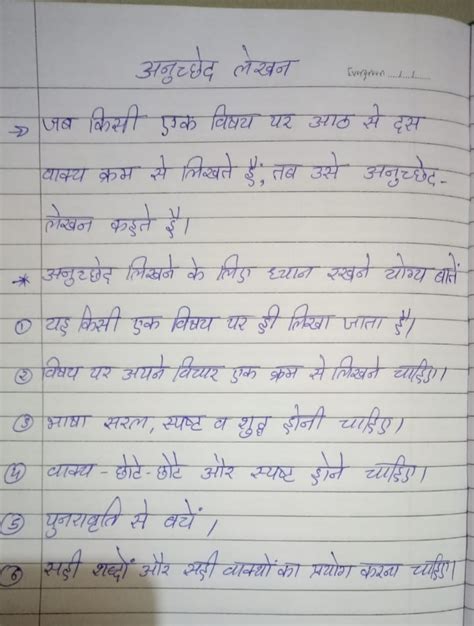 अनुच्छेद लेखन
Evergreen
→ जब किसी एक विषय पर आठ से दस
वाक्य क्रम से लिखते हैं, तब उसे अनुच्छेद-
लेखन कहते है।
* अनुच्छेद लिखने के लिए ध्यान रखने योग्य बातें
① यह किसी एक विषय पर ही लिखा जाता है।
② विषय पर अपने विचार एक क्रम से लिखने चाहिए।
③ भाषा सरल, स्पष्ट व शुद्ध होनी चाहिए।
④ वाक्य - छोटे-छोटे और स्पष्ट होने चाहिए।
⑤ पुनरावृति से बचें।
⑥ सही शब्दों और सही वाक्यों का प्रयोग करना चाहिए।